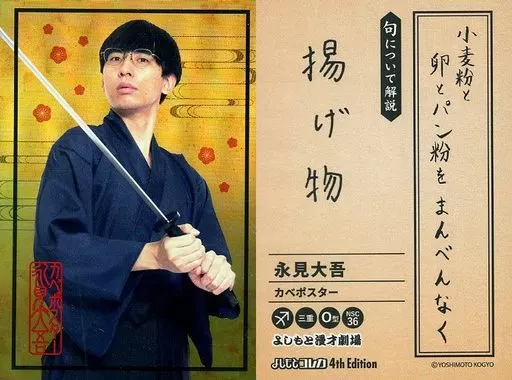 カベポスター
永見大吾
句について解説
小麦粉と
卵とパン粉を
まんべんなく
揚げ物
永見大吾
カベポスター
三重
O型
NSC
36
よしもと漫才劇場
よしもとコレカ 4th Edition
©YOSHIMOTO KOGYO